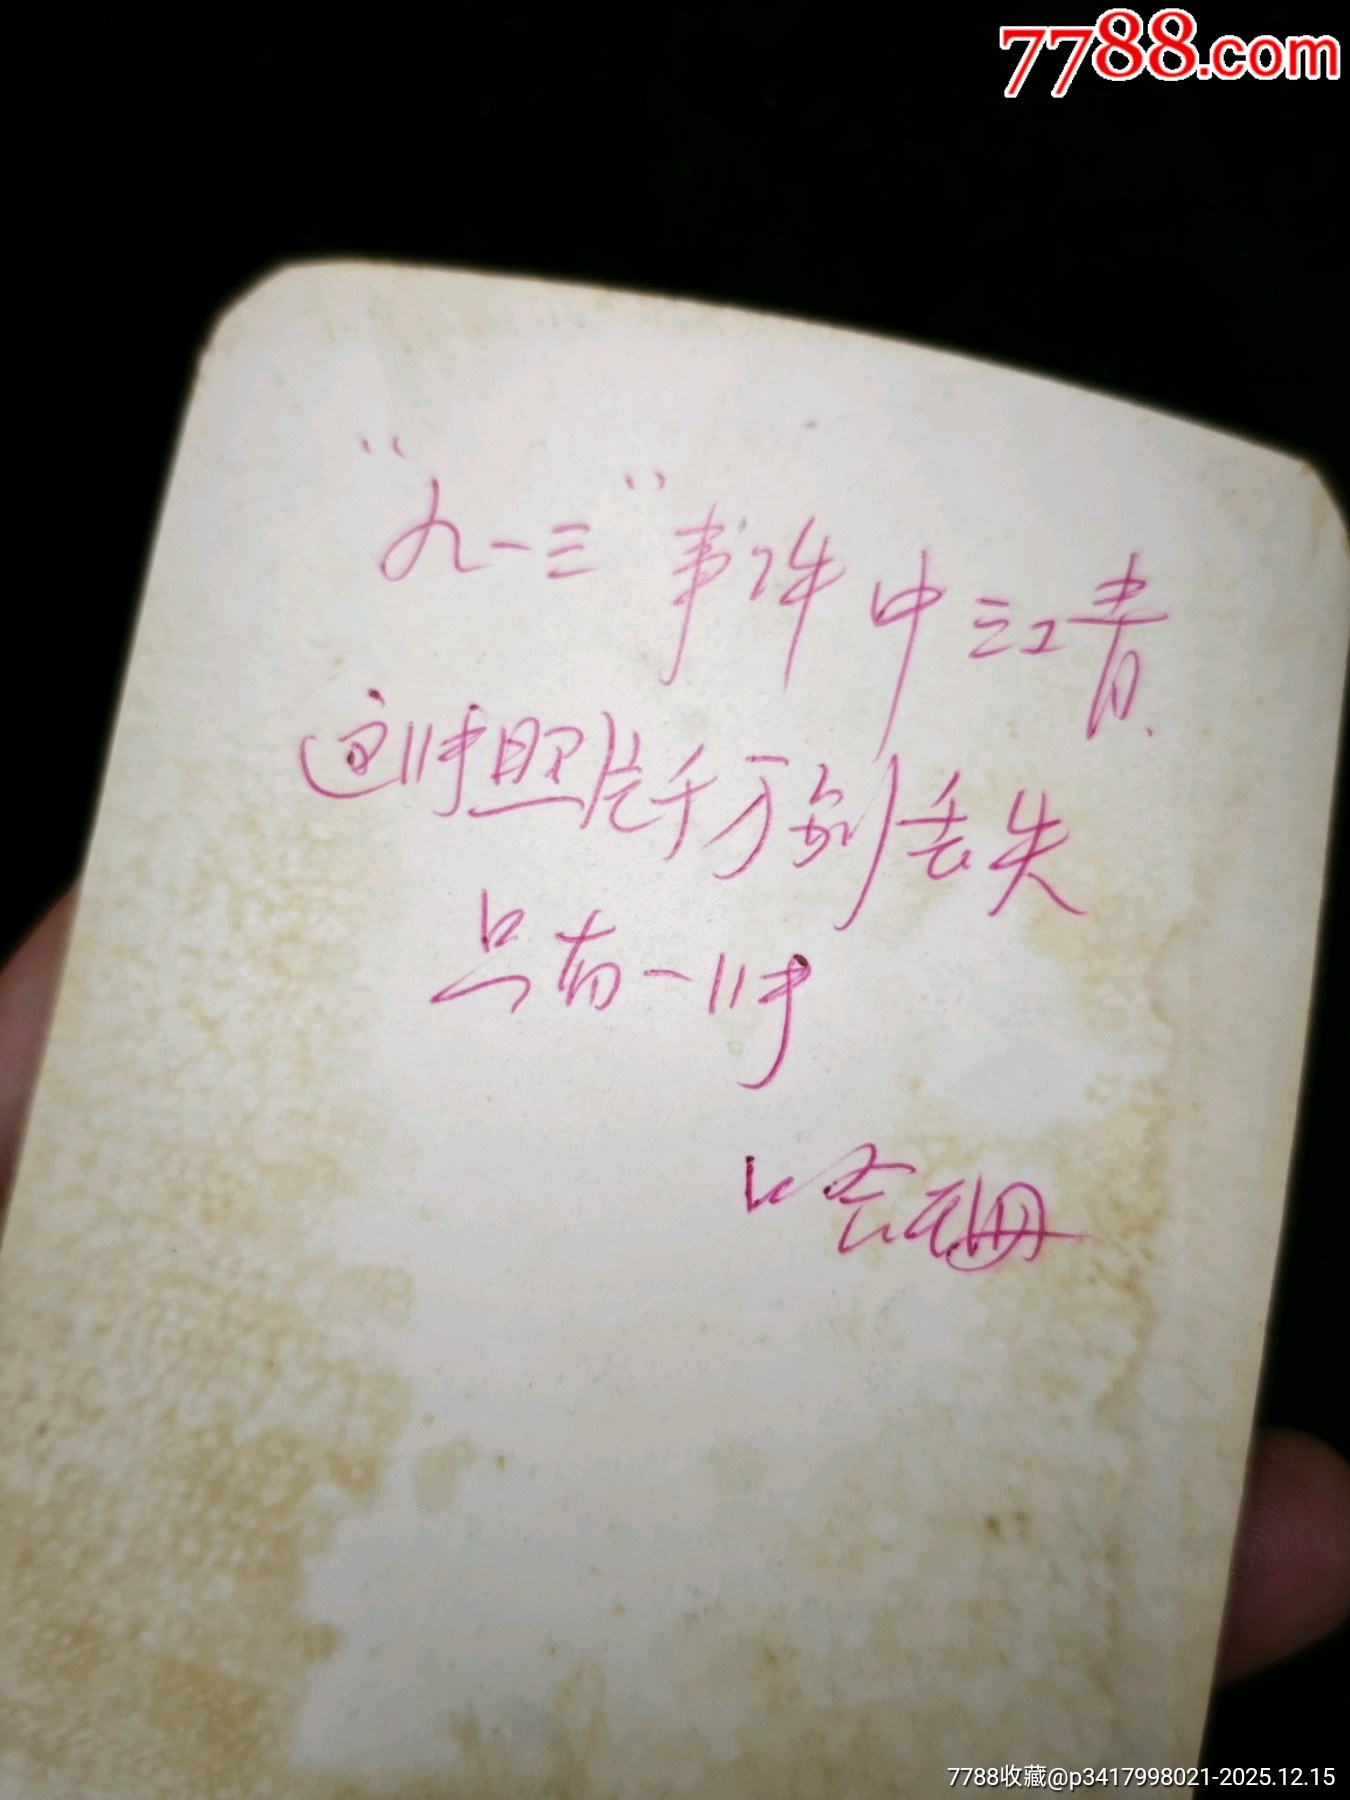 7788.com
“九一三”事件中江青
这时照片千万别丢失
只有一时
7788收藏@p3417998021-2025.12.15